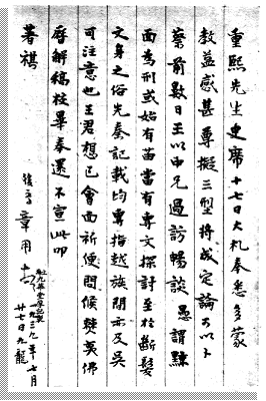 重熙先生史席十七日大札奉悉多蒙
教益感甚尊擬三型將成定論可以卜
蔡前數日王以中兄過訪暢談愚謂黥
面為刑或始有苗當有專文探討至於斷髮
文身之俗先秦記載均專指越族間亦及吳
可注意也王君想已會面祈便問候樊英佛
辭解稿校畢奉還不宣此叩
著祺
後學章用
一九三九年七月
廿七日九龍